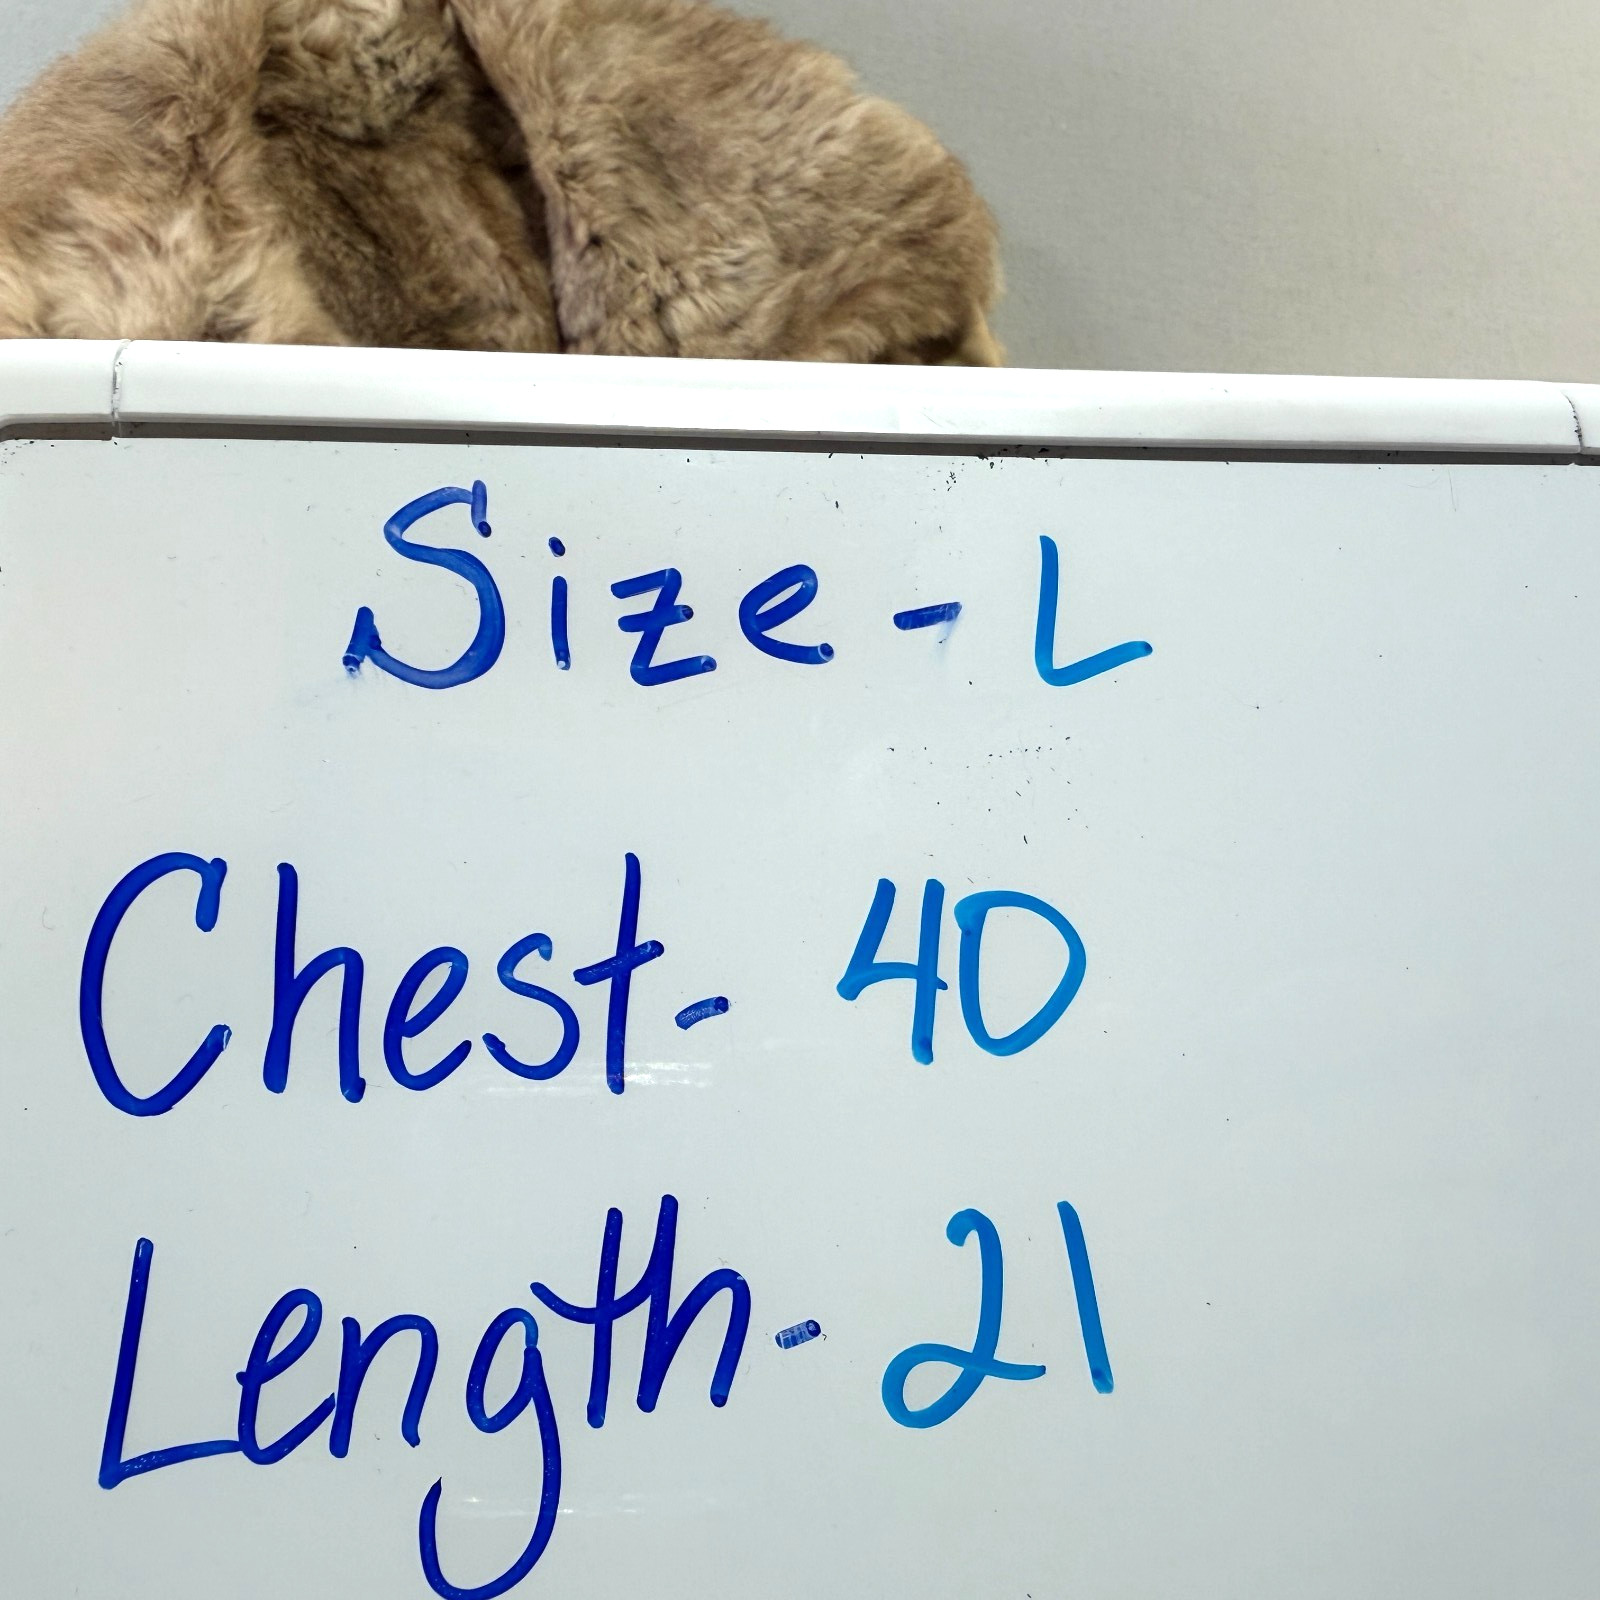 Size - L
Chest- 40
Length- 21